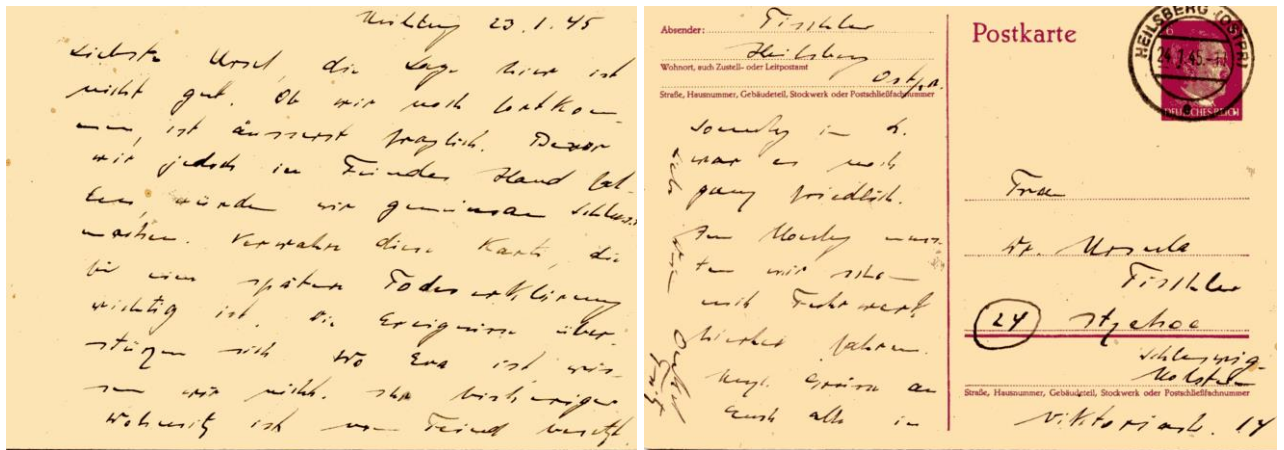 Heilsberg 23.1.45
Liebste Ursel, die Lage hier ist
nicht gut. Ob wir noch fortkom-
men, ist äusserst fraglich. Bevor
wir jedoch in Feindes Hand fal-
len, würden wir gemeinsam Schluss
machen. Verwahre diese Karte, die
für eine spätere Todeserklärung
wichtig ist. Die Ereignisse über-
stürzen sich. Wo Eva ist, wis-
sen wir nicht. Ihr bisheriger
Wohnsitz ist vom Feind besetzt.
Absender: Fischler
Heilsberg
Wohnort, auch Zustell- oder Leitpostamt
Ostpr.
Straße, Hausnummer, Gebäudeteil, Stockwerk oder Postschließfachnummer
Sonntag in L.
war es noch
ganz friedlich.
Am Montag muss-
ten wir schon
mit Fuhrwerk
hierher fahren.
Herzl. Grüsse an
Euch alle in
Liebe
Onkel
Postkarte
HEILSBERG (OSTPR)
24.1.45.
6
DEUTSCHES REICH
Frau
Dr. Ursula
Fischler
(24) Itzehoe
Schleswig-
Holstein
Straße, Hausnummer, Gebäudeteil, Stockwerk oder Postschließfachnummer
Viktoriastr. 14